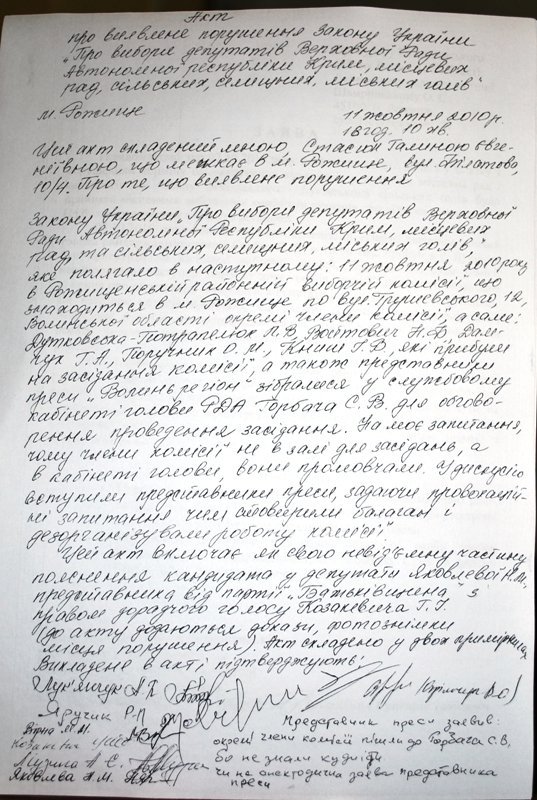 Акт
про виявлене порушення Закону України
„Про вибори депутатів Верховної Ради
Автономної республіки Крим, місцевих
рад, сільських, селищних, міських голів"
м. Рожище 11 жовтня 2010 р.
18 год. 10 хв.
Цей акт складений мною, Стасюк Галиною Євге-
ніївною, що мешкає в м. Рожище, вул.
10/4. Про те, що виявлене порушення
Закону України „Про вибори депутатів Верховної
Ради Автономної Республіки Крим, місцевих
рад, та сільських, селищних, міських голів",
яке полягало в наступному: 11 жовтня 2010 року
в Рожищенській районній виборчій комісії, що
знаходиться в м. Рожище по вул. Грушевського, 12,
Волинської області окремі члени комісії, а саме:
Дутковська-Потрапелюк Л.В, Войтович Н.Ф, Дам-
чук Г.А., Поручник О.М., Книш Г.В, які прибули
на засідання комісії, а також представники
преси „Волинь регіон" зібралися у службовому
кабінеті голови РДА Горбача С.В. для обгово-
рення проведення засідання. На моє запитання,
чому члени комісії не в залі для засідань, а
в кабінеті голови, вони промовчали. У дискусію
вступили представники преси, задаючи провокацій-
ні запитання чим створили балаган і
дезорганізували роботу комісії.
Цей акт включає як свого невід'ємну частину
пояснення кандидата у депутати Яковлевої Н.М,
представника від партії „Батьківщина" з
правом дорадчого голосу Козакевича Г.Г.
(до акту додаються докази, фотознімки
місця порушення). Акт складено у двох примірниках
Викладене в акті підтверджують:
Лук'янчук А.П
Яручик Р.П
Вірна М.М.
Музика А Є.
Яковлева Н.М.
Представник преси заявив:
окремі члени комісії пішли до Горбача С.В,
бо не знали куди йти
чи не анекдотична заява представника
преси